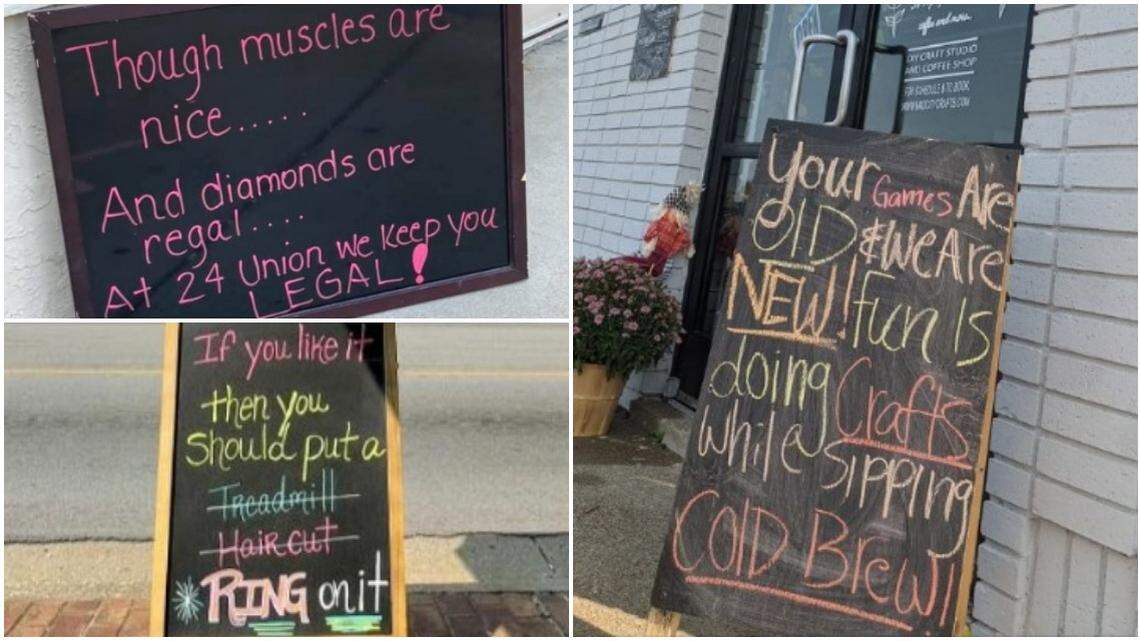 Though muscles are
nice.....
And diamonds are
regal....
At 24 Union we keep you
LEGAL!
If you like it
then you
should put a
Treadmill
Haircut
RING on it
coffee and more.
DIY CRAFT STUDIO
AND COFFEE SHOP
FOR SCHEDULE & TO BOOK
WWW.MADCITYCRAFTS.COM
Your Games Are
OlD & We Are
NEW! Fun Is
doing Crafts
while Sipping
COlD Brew!